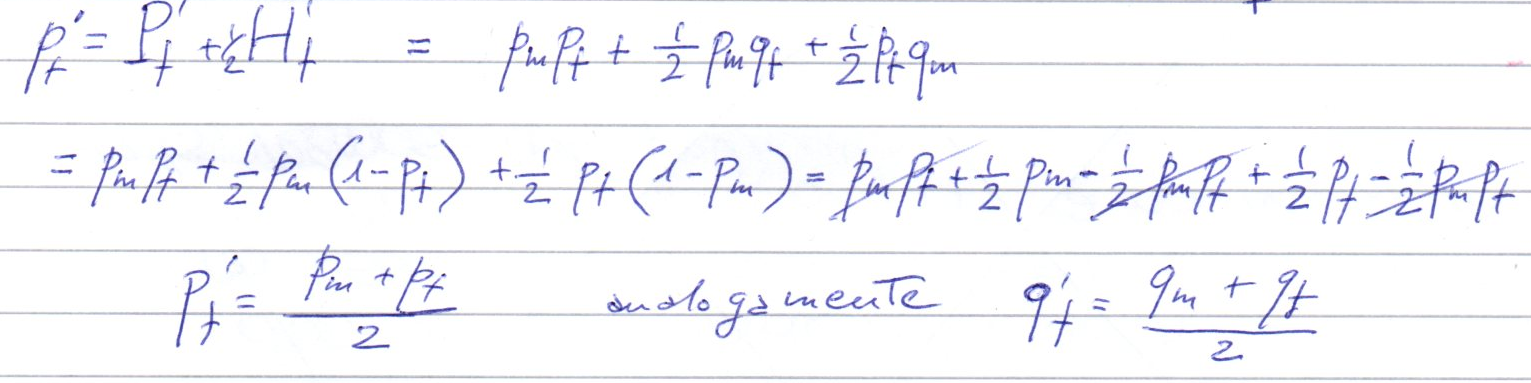 p'_f = P'_f + ½ H'_f = p_m p_f + ½ p_m q_f + ½ p_f q_m
= p_m p_f + ½ p_m (1 - p_f) + ½ p_f (1 - p_m) = p_m p_f + ½ p_m - ½ p_m p_f + ½ p_f - ½ p_m p_f
p'_f = (p_m + p_f)/2 analogamente q'_f = (q_m + q_f)/2